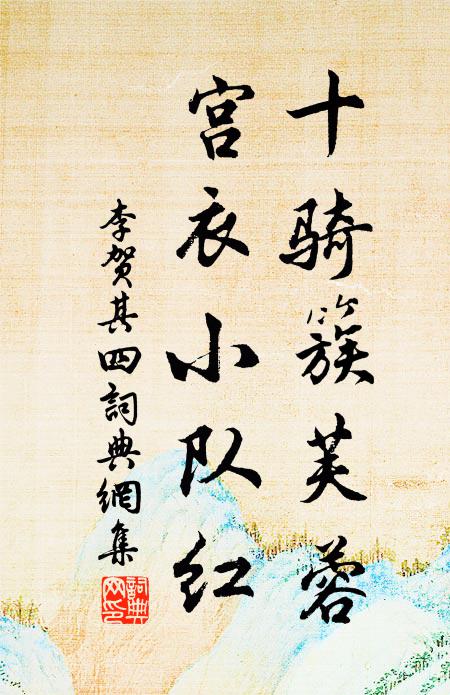 十骑簇芙蓉
宫衣小队红
李贺其四詞典網集
詞典